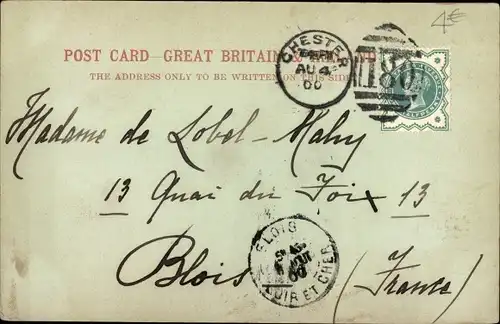 4€
POST CARD—GREAT BRITAIN &
THE ADDRESS ONLY TO BE WRITTEN ON THIS SIDE
CHESTER
AU 4
00
180
HALFPENNY
Madame de Lobel-Mahy
13 Quai du Foix 13
Blois (France)
BLOIS
LOIR ET CHER